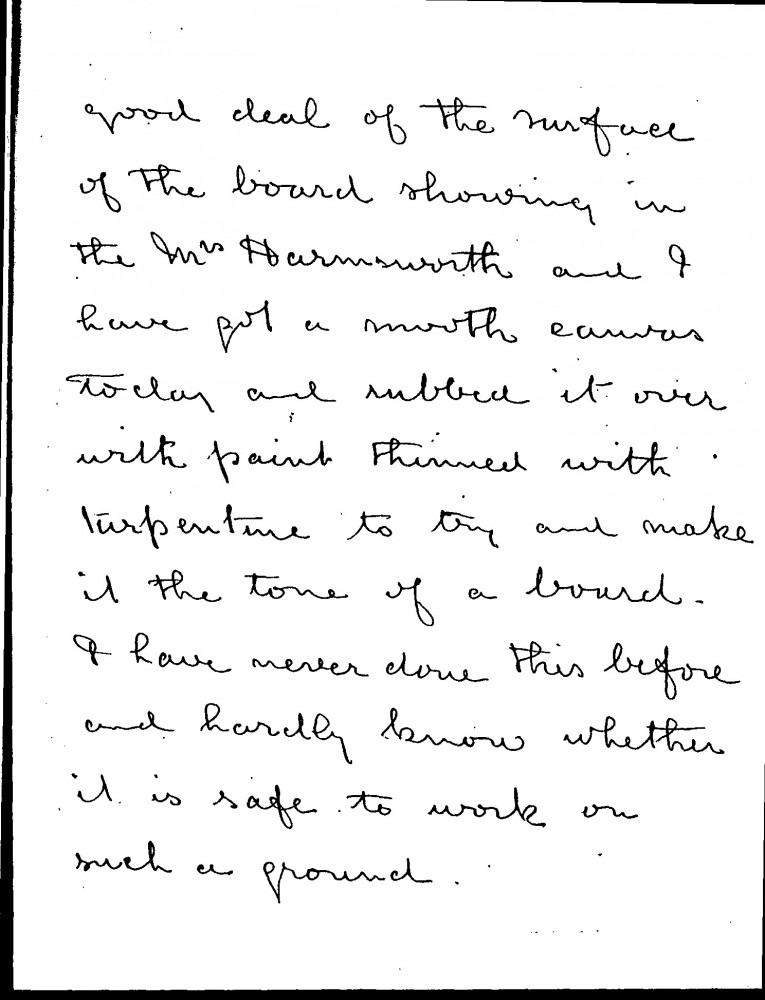 good deal of the surface
of the board showing in
the Mrs Harmsworth and I
have got a smooth canvas
today and rubbed it over
with paint thinned with
turpentine to try and make
it the tone of a board.
I have never done this before
and hardly know whether
it is safe to work on
such a ground.